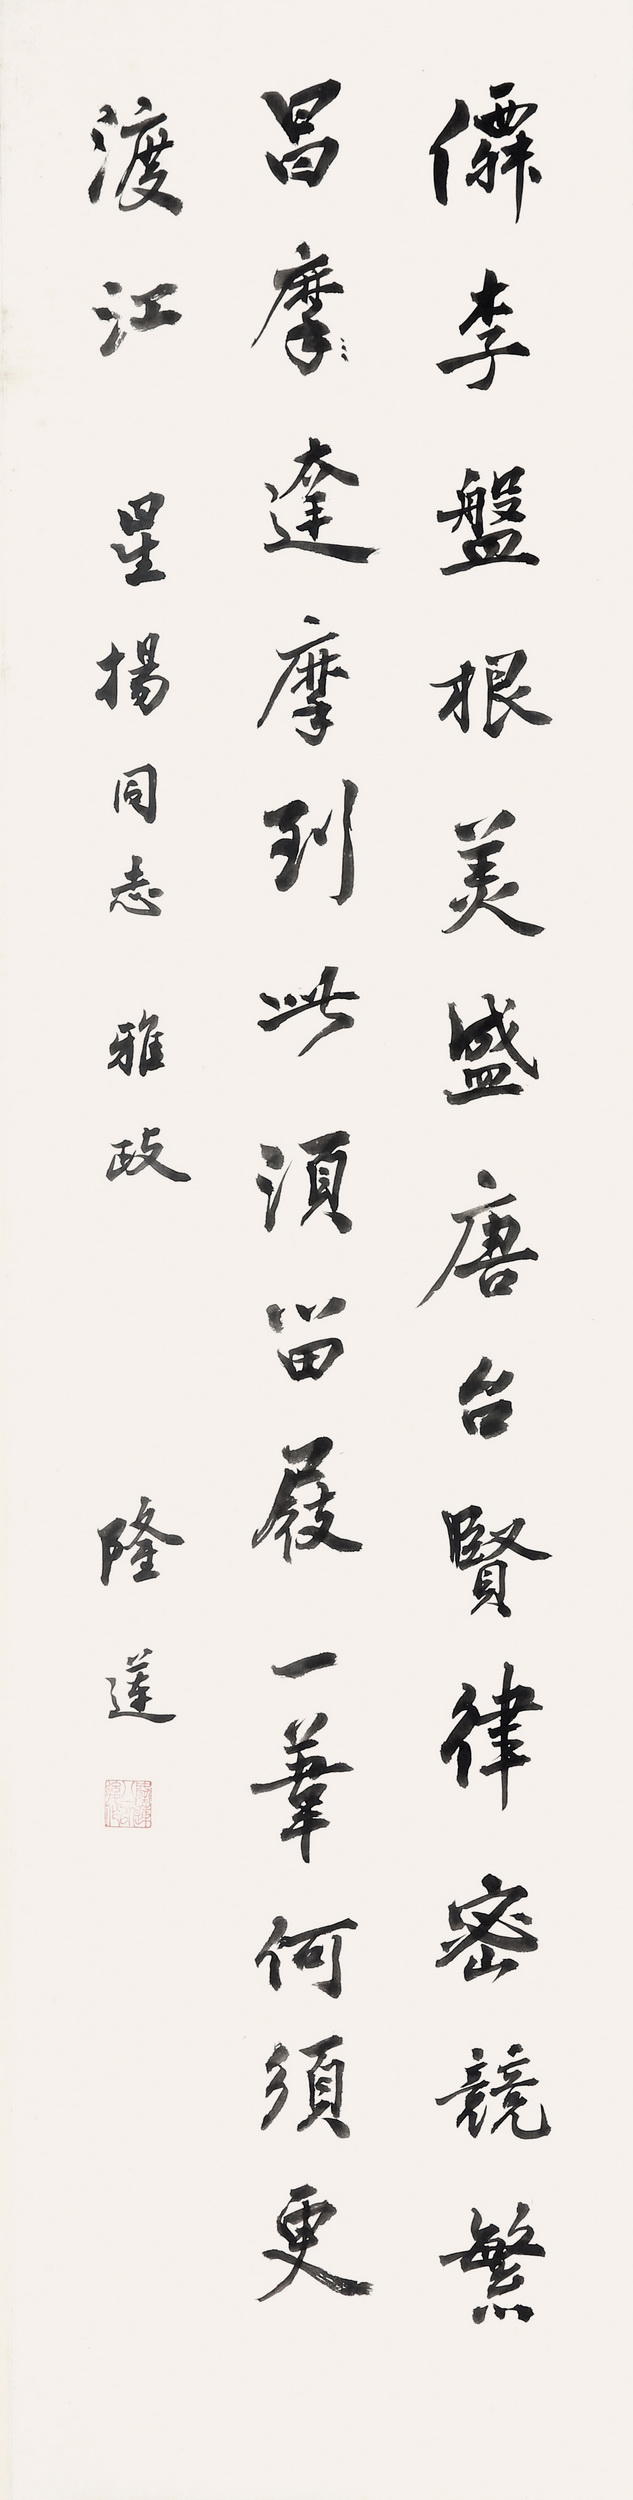 僊李盤根美盛唐台賢律密競繁
昌摩達摩到此須留屐一葦何須更
渡江 星揚同志 雅政 隆蓮